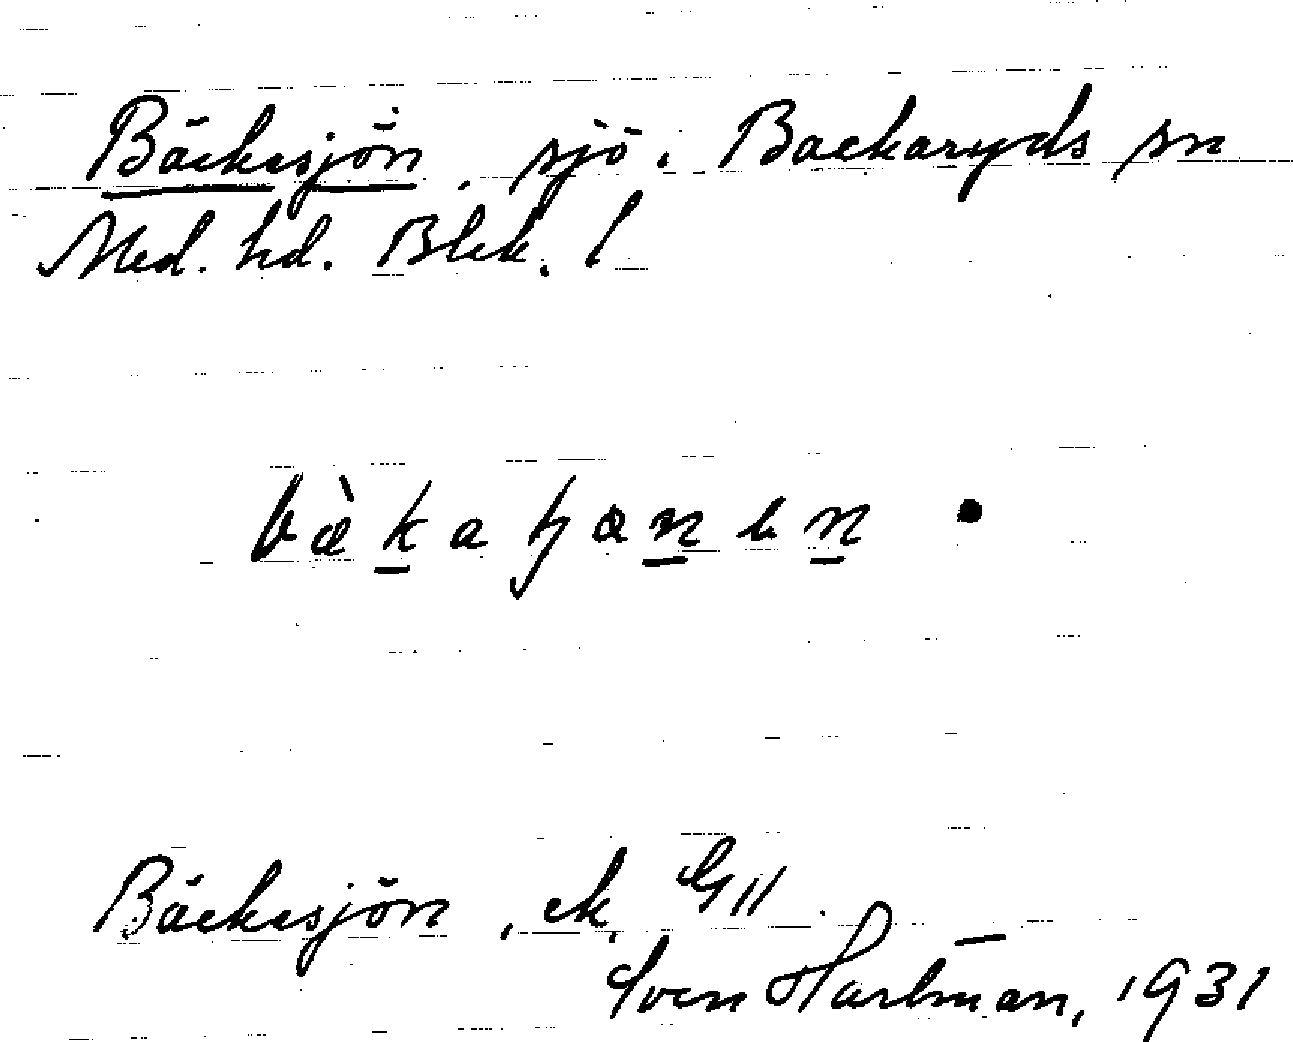 Bäckesjön, sjö. Backaryds sn
Med. hd. Blek. l
bæ̀kaɧænen
Bäckesjön, ek. G 11
Sven Hartman, 1931